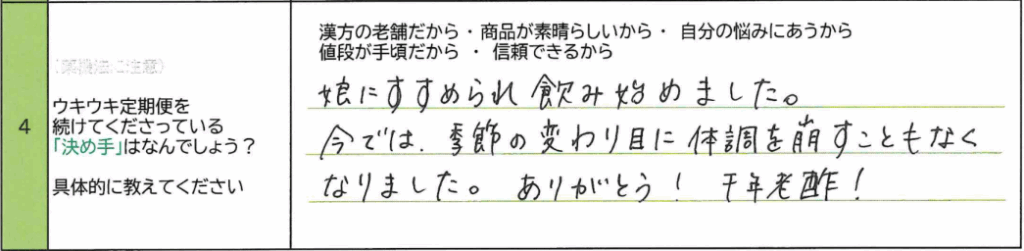 漢方の老舗だから・商品が素晴らしいから・ 自分の悩みにあうから
値段が手頃だから ・ 信頼できるから
(薬機法に注意)
4
ウキウキ定期便を
続けてくださっている
「決め手」はなんでしょう?
具体的に教えてください
娘にすすめられ飲み始めました。
今では、季節の変わり目に体調を崩すこともなく
なりました。 ありがとう! 千年老酢!